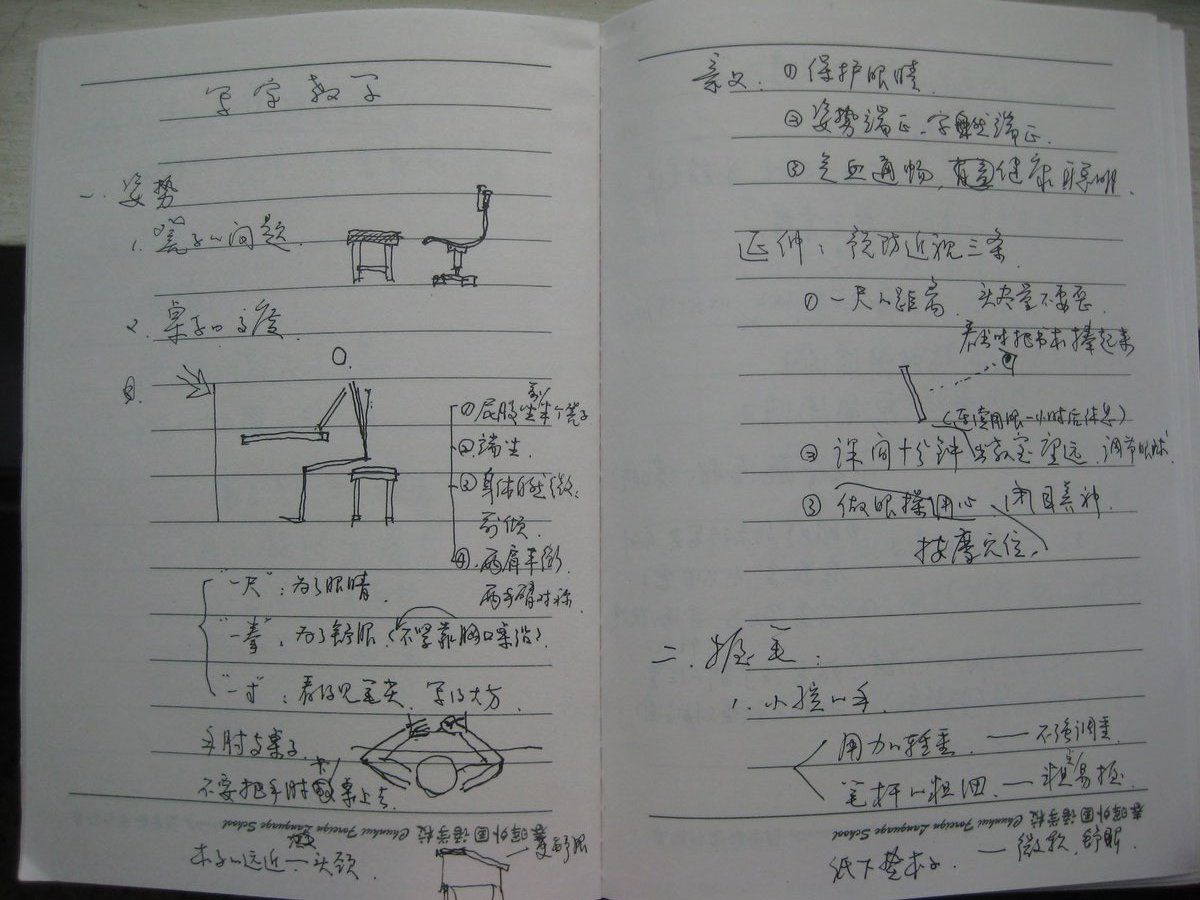 写字教学
一、姿势
1. 凳子的问题
2. 桌子的高度
①屁股坐到半个凳子
②端坐
③身体自然微
前倾
④两肩平衡
两手臂对称
"一尺"：为了眼睛
"一拳"：为了舒服（不紧靠胸口桌沿）
"一寸"：看得见笔尖 写得大方
手肘与桌子
不要把手肘 桌上去
春晖外国语学校 Chunhui Foreign Language School
本子的远近——头颈
意义：①保护眼睛
②姿势端正，字自然端正
③气血通畅，有益健康 聪明
延伸：预防近视三条
①一尺的距离 头尽量不要歪
看书时把书本捧起来
（连续用眼一小时后休息）
②课间十分钟 出教室望远 调节眼球
③做眼操用心 闭目养神
按摩穴位
二、握笔：
1. 小孩的手
用力的轻重 —— 不强调重
笔杆的粗细 —— 粗 易握
春晖外国语学校 Chunhui Foreign Language School
纸下垫本子 —— 微软 舒服